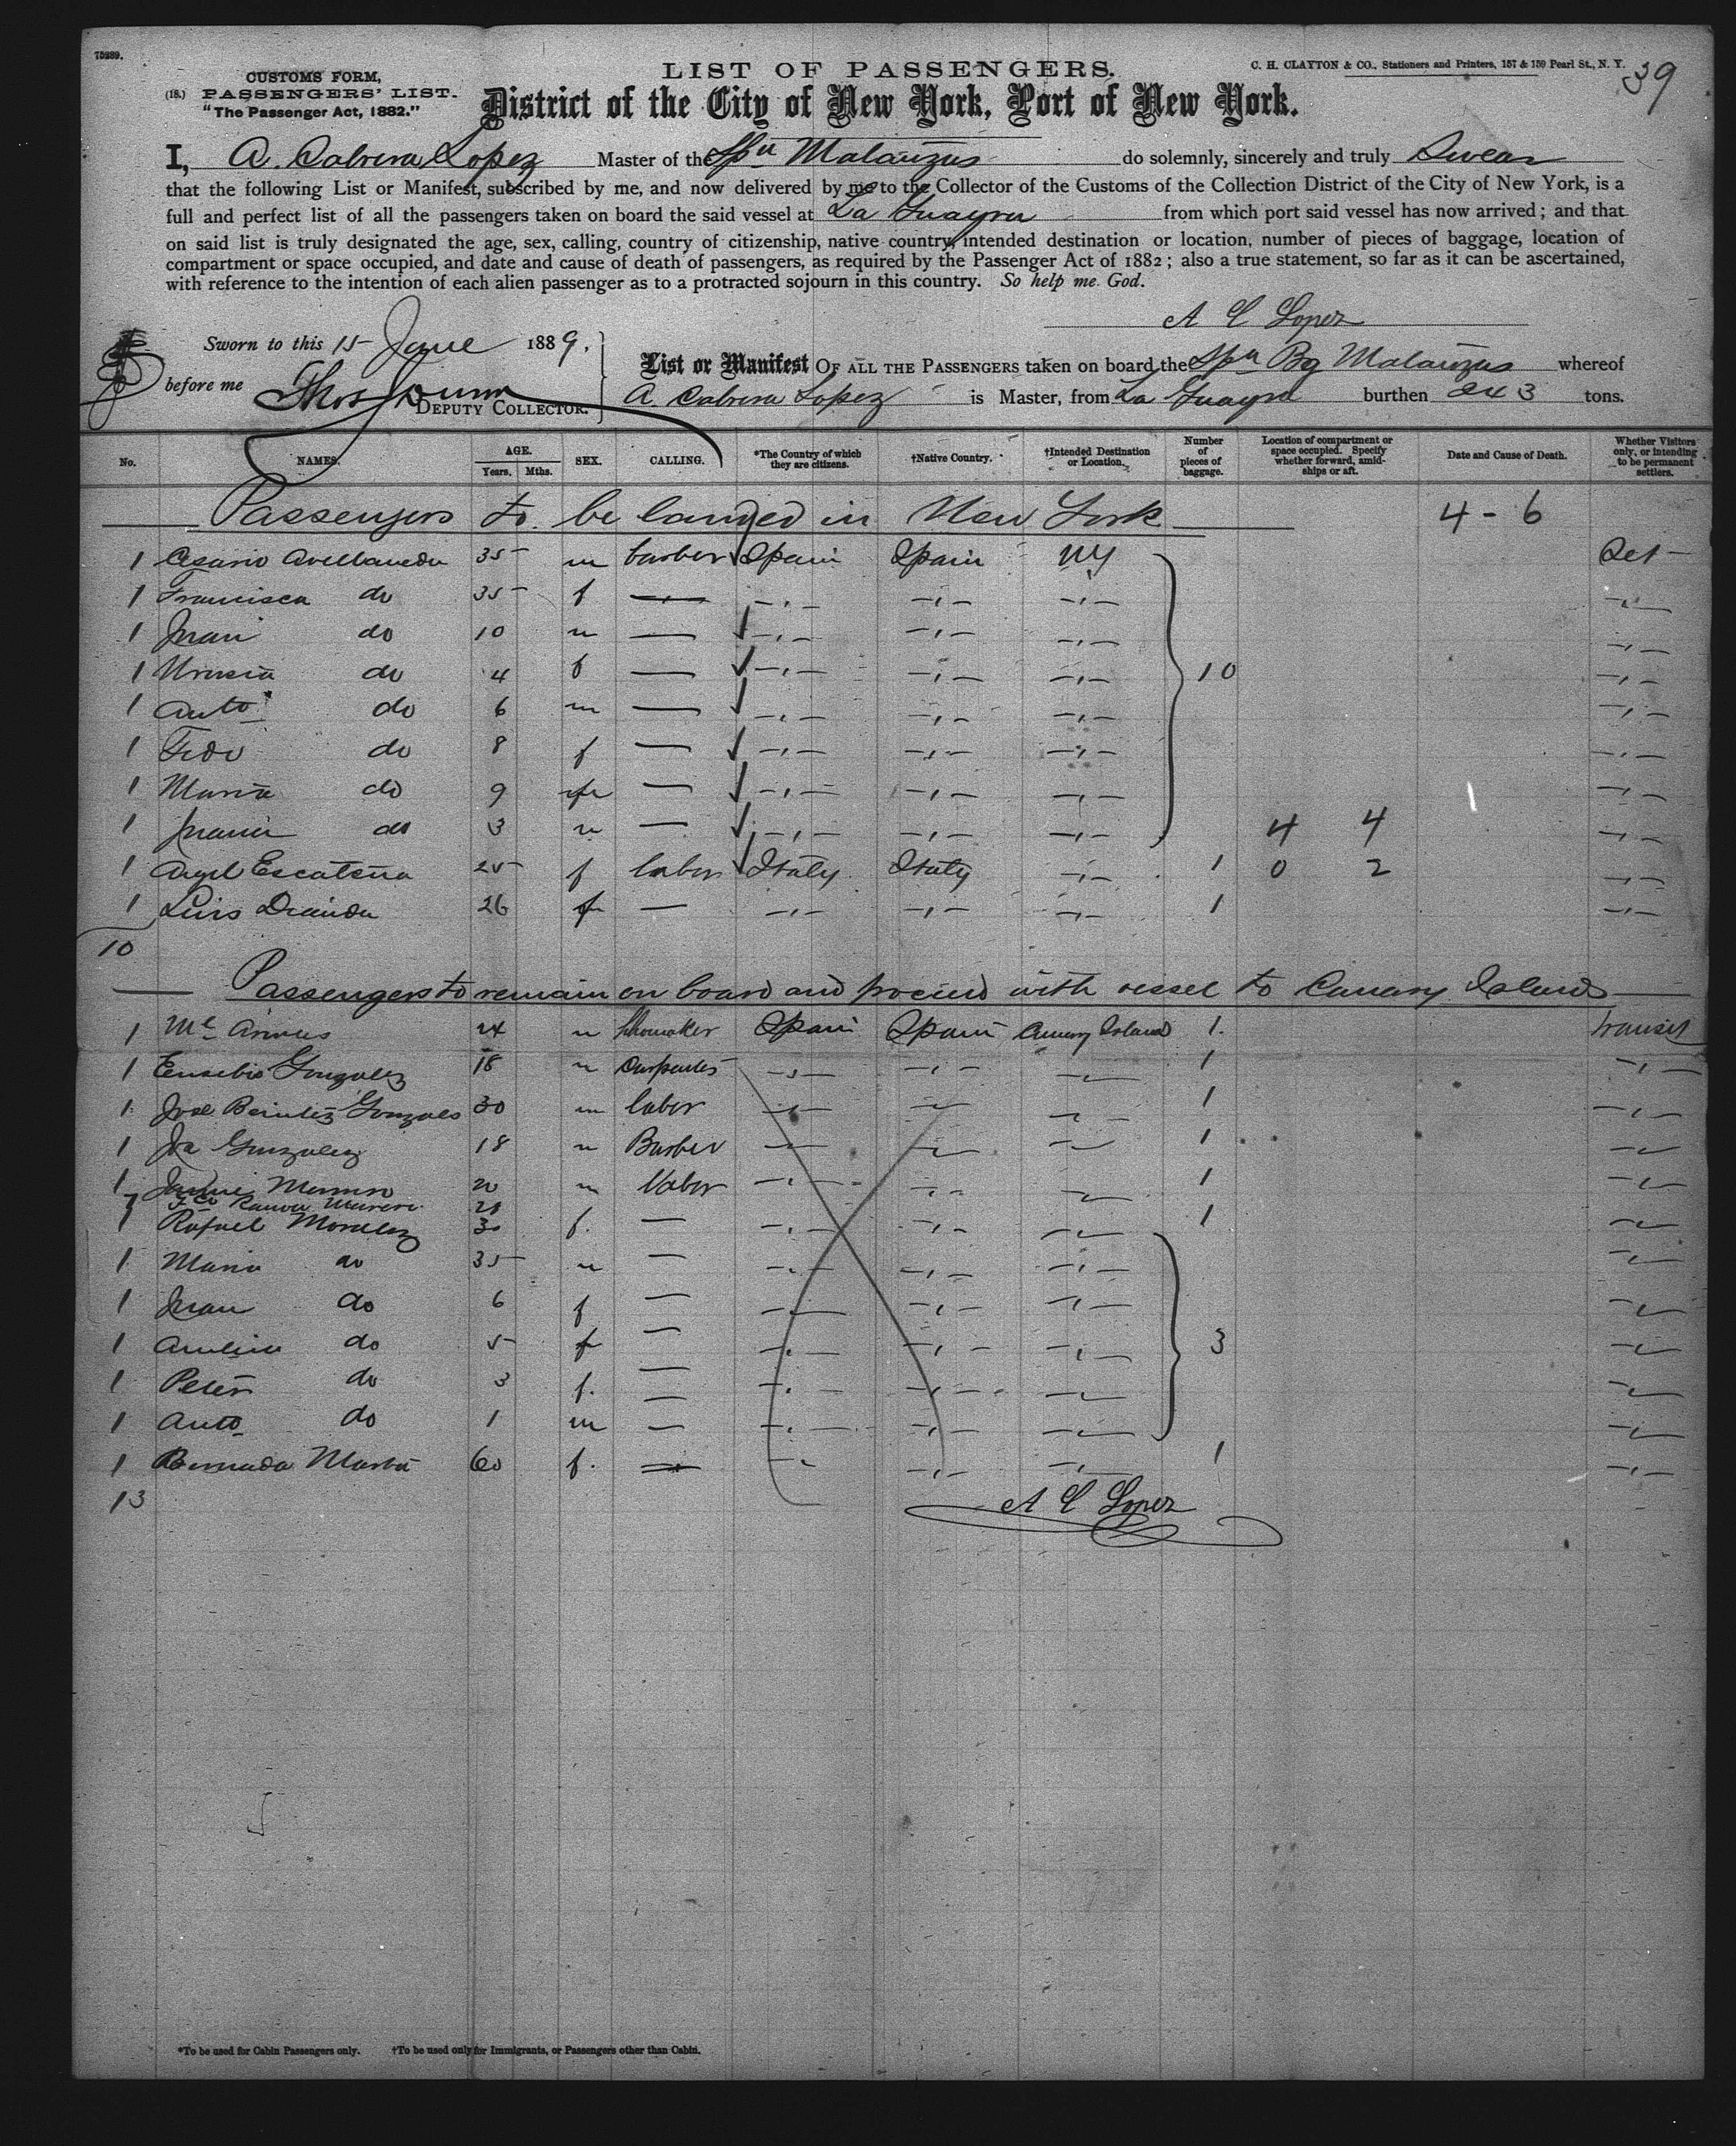 75289.
CUSTOMS FORM,
(18.) PASSENGERS' LIST.
"The Passenger Act, 1882."
LIST OF PASSENGERS.
C. H. CLAYTON & CO., Stationers and Printers, 157 & 159 Pearl St., N. Y.
39
District of the City of New York, Port of New York.
I, A. Cabrera Lopez Master of the Spn Malauzus do solemnly, sincerely and truly Swear
that the following List or Manifest, subscribed by me, and now delivered by me to the Collector of the Customs of the Collection District of the City of New York, is a
full and perfect list of all the passengers taken on board the said vessel at La Guayra from which port said vessel has now arrived; and that
on said list is truly designated the age, sex, calling, country of citizenship, native country, intended destination or location, number of pieces of baggage, location of
compartment or space occupied, and date and cause of death of passengers, as required by the Passenger Act of 1882; also a true statement, so far as it can be ascertained,
with reference to the intention of each alien passenger as to a protracted sojourn in this country. So help me God.
A C Lopez
Sworn to this 15 June 1889.
before me Thos Dunn
DEPUTY COLLECTOR.
List or Manifest OF ALL THE PASSENGERS taken on board the Spn Bg Malauzus whereof
A Cabrera Lopez is Master, from La Guayra burthen 243 tons.
No. NAMES. AGE. Years. Mths. SEX. CALLING. *The Country of which they are citizens. †Native Country. †Intended Destination or Location. Number of pieces of baggage. Location of compartment or space occupied. Specify whether forward, amidships or aft. Date and Cause of Death. Whether Visitors only, or intending to be permanent settlers.
Passengers to be landed in New York 4 - 6
1 Cesario Avellaneda 35 m barber Spain Spain NY Set
1 Francisca do 35 f — -,- -,- -,- -,-
1 Juan do 10 m — -,- -,- -,- -,-
1 do 4 f — -,- -,- -,- 10 -,-
1 Anto do 6 m — -,- -,- -,- -,-
1 Fedo do 8 f — -,- -,- -,- -,-
1 Maria do 9 — -,- -,- -,- -,-
1 Juana do 3 m — -,- -,- -,- 4 4 -,-
1 Angel Escatena 25 f labor Italy Italy -,- 1 0 2 -,-
1 Luis 26 — -,- -,- -,- 1 -,-
10
Passengers to remain on board and proceed with vessel to Canary Islands
1 Ml 24 m Shomaker Spain Spain Canary Island 1. transit
1 Eusebio Gonzalez 18 m Carpenter -,- -,- -,- 1 -,-
1 Jose Benitez Gonzales 30 m labor -,- -,- -,- 1 -,-
1 Gonzalez 18 m Barber -,- -,- -,- 1 -,-
1 Jaime 20 m labor -,- -,- -,- 1 -,-
Ramon 21
1 Rafael Moralez 30 f. — -,- -,- -,- 1 -,-
1 Maria do 35 m — -,- -,- -,- -,-
1 Juan do 6 f — -,- -,- -,- -,-
1 Amelia do 5 f — -,- -,- -,- 3 -,-
1 Peter do 3 f. — -,- -,- -,- -,-
1 Anto do 1 m — -,- -,- -,- -,-
1 Bernada 60 f. — -,- -,- -,- 1 -,-
13
A C Lopez
*To be used for Cabin Passengers only. †To be used only for Immigrants, or Passengers other than Cabin.